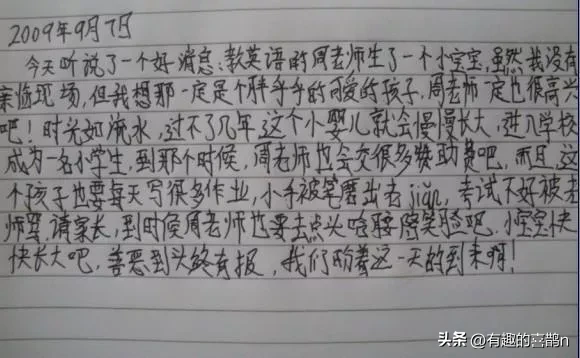 2009年9月7日
今天听说了一个好消息:教英语的周老师生了一个小宝宝,虽然我没有
亲临现场,但我想那一定是个胖乎乎的可爱的孩子,周老师一定也很高兴
吧!时光如流水,过不了几年,这个小婴儿就会慢慢长大,进入学校
成为一名小学生,到那个时候,周老师也会交很多赞助费吧,而且,这
个孩子也要每天写很多作业,小手被笔磨出老jiǎn,考试不好被老
师骂,请家长,到时候周老师也要去点头哈腰陪笑脸吧,小宝宝快
快长大吧,善恶到头终有报,我们盼着这一天的到来啊!
头条 @有趣的喜鹊n